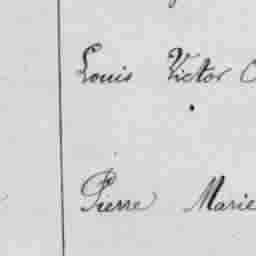 Louis Victor
Pierre Marie